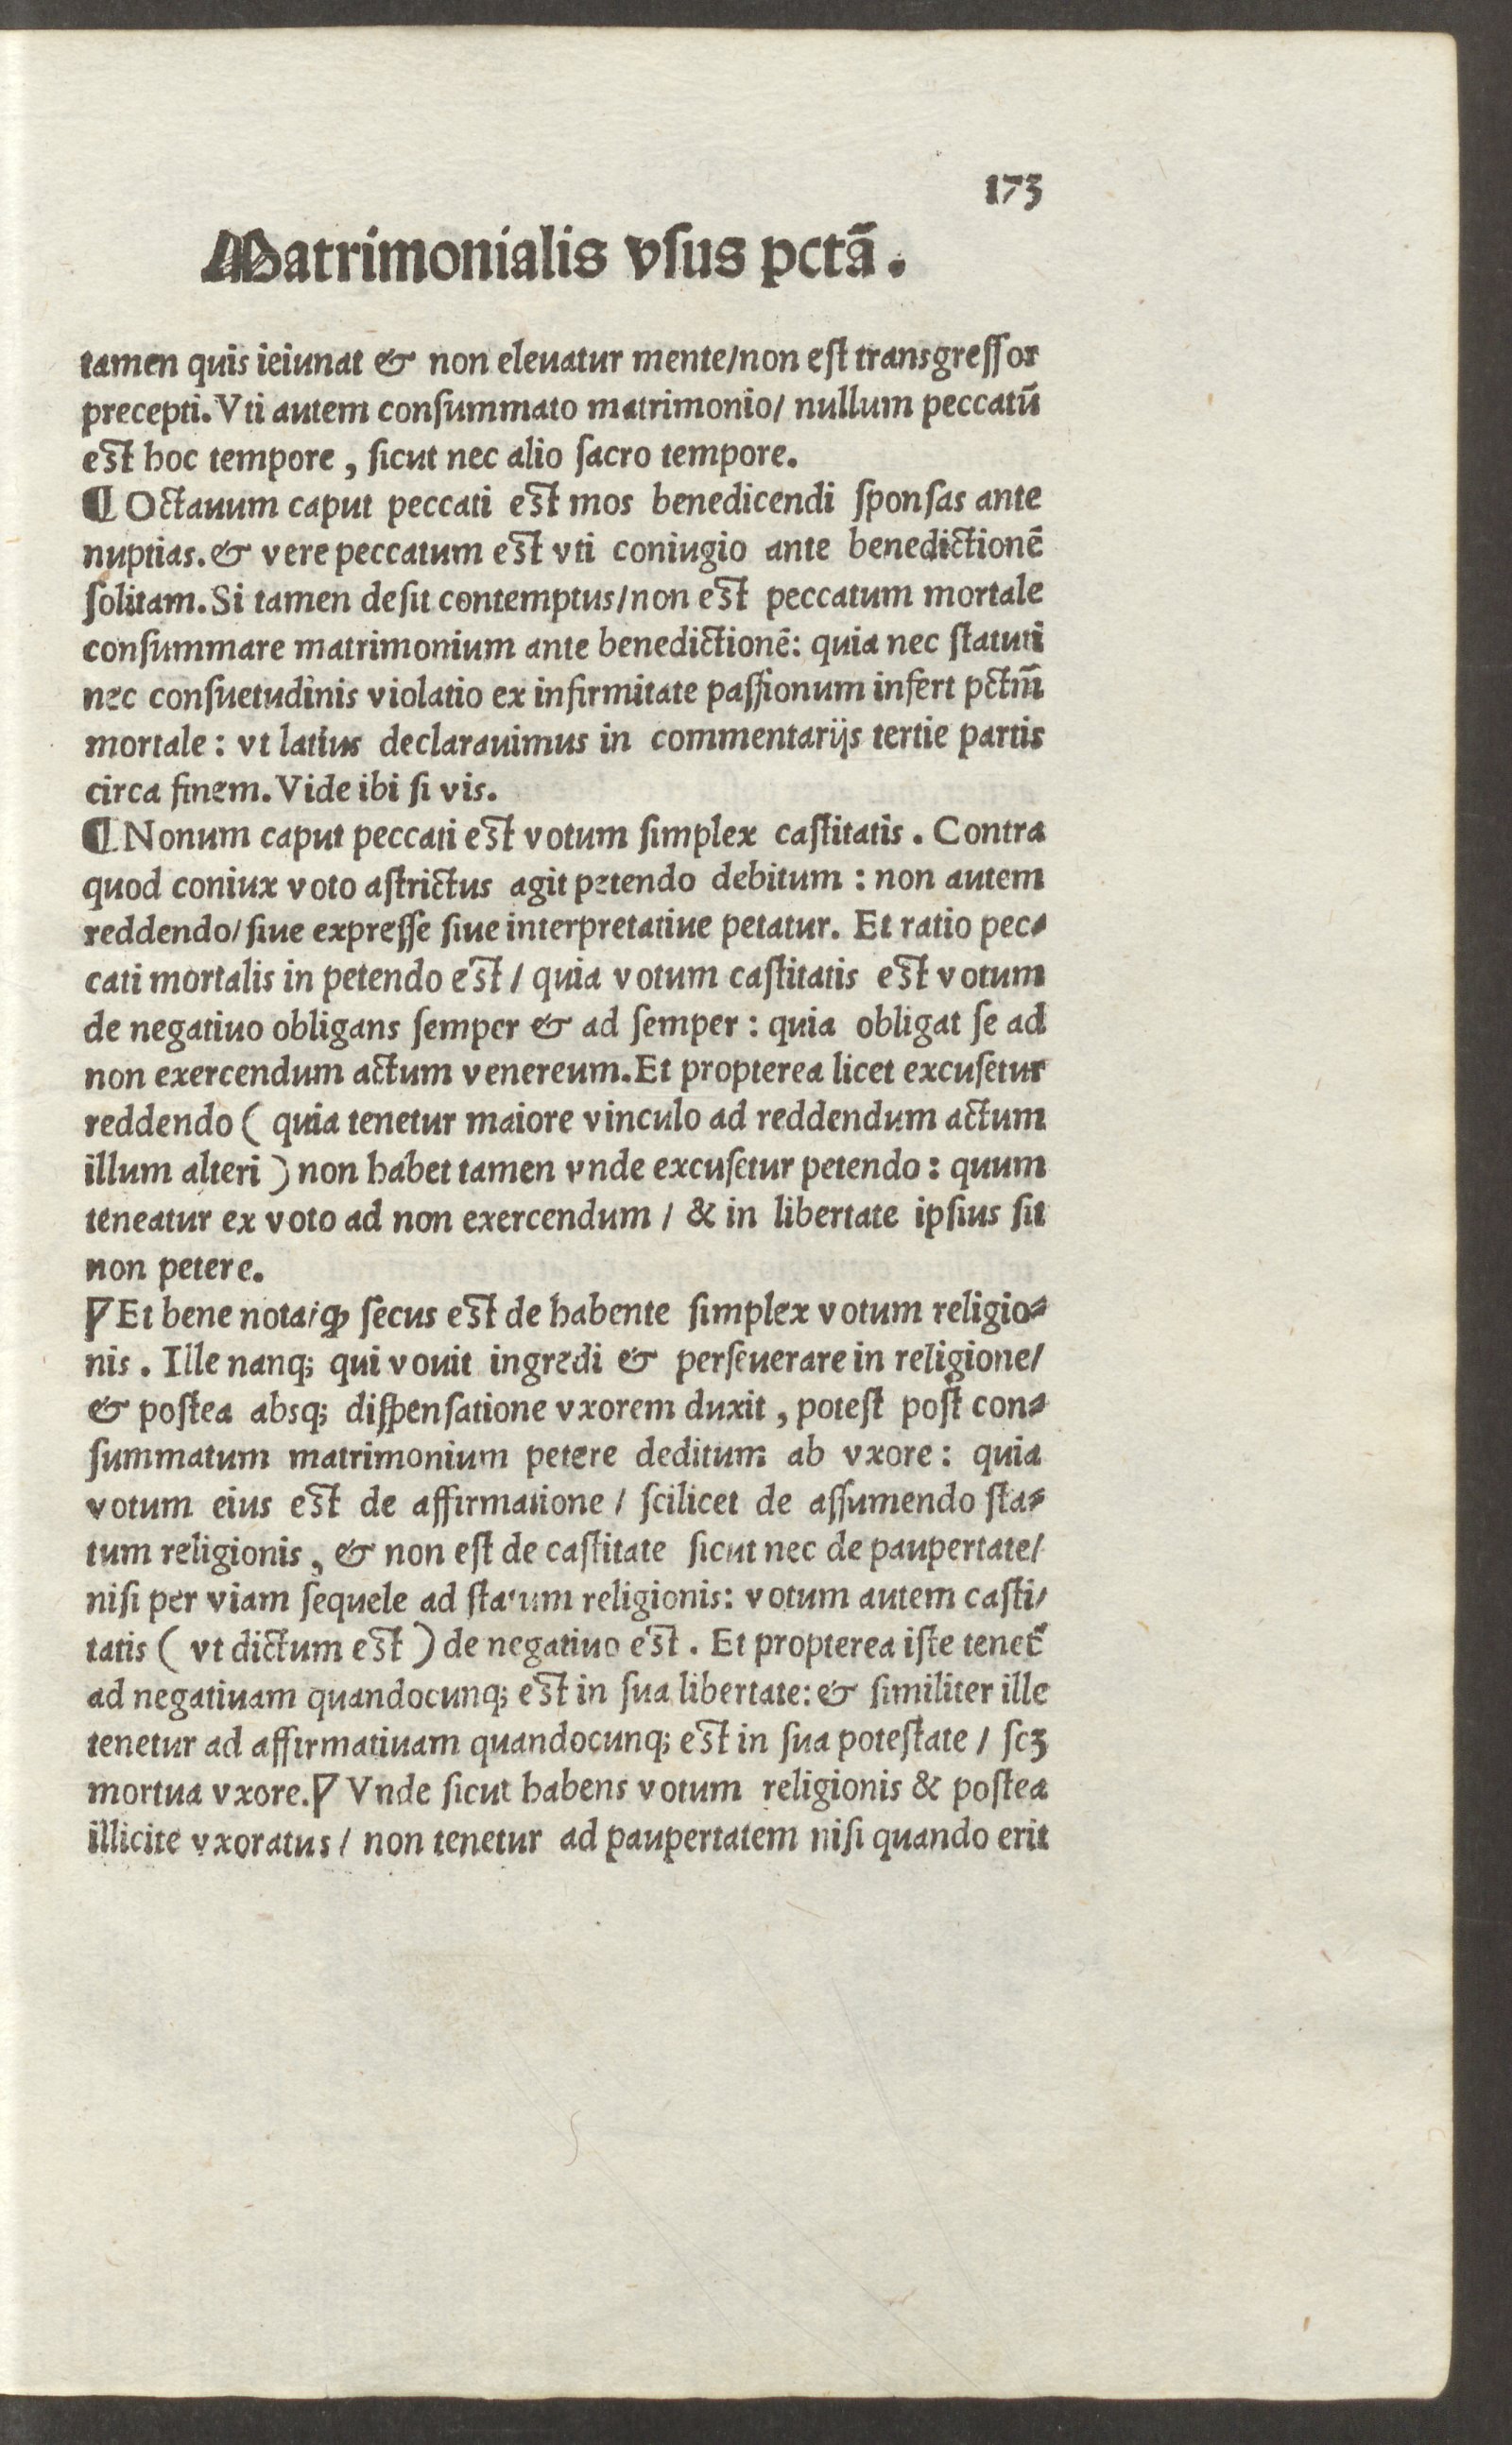 173
Matrimonialis vſus pctã.
tamen quis ieiunat & non eleuatur mente/non eſt transgreſſor
precepti. Vti autem conſummato matrimonio/ nullum peccatũ
eſt hoc tempore, ſicut nec alio ſacro tempore.
¶ Octauum caput peccati eſt mos benedicendi ſponſas ante
nuptias. & vere peccatum eſt vti coniugio ante benedictionẽ
ſolitam. Si tamen deſit contemptus/non eſt peccatum mortale
conſummare matrimonium ante benedictionẽ: quia nec ſtatuti
nec conſuetudinis violatio ex infirmitate paſſionum infert pctm̃
mortale: vt latius declarauimus in commentarijs tertie partis
circa finem. Vide ibi ſi vis.
¶ Nonum caput peccati eſt votum ſimplex caſtitatis. Contra
quod coniux voto aſtrictus agit petendo debitum: non autem
reddendo/ ſiue expreſſe ſiue interpretatiue petatur. Et ratio pec⸗
cati mortalis in petendo eſt/ quia votum caſtitatis eſt votum
de negatiuo obligans ſemper & ad ſemper: quia obligat ſe ad
non exercendum actum venereum. Et propterea licet excuſetur
reddendo ( quia tenetur maiore vinculo ad reddendum actum
illum alteri ) non habet tamen vnde excuſetur petendo: quum
teneatur ex voto ad non exercendum / & in libertate ipſius ſit
non petere.
Ꝩ Et bene nota/ ꝙ ſecus eſt de habente ſimplex votum religio⸗
nis. Ille nanq; qui vouit ingredi & perſeuerare in religione/
& poſtea absq; diſpenſatione vxorem duxit, poteſt poſt con⸗
ſummatum matrimonium petere deditum ab vxore: quia
votum eius eſt de affirmatione / ſcilicet de aſſumendo ſta⸗
tum religionis, & non eſt de caſtitate ſicut nec de paupertate/
niſi per viam ſequele ad ſtatum religionis: votum autem caſti/
tatis ( vt dictum eſt ) de negatiuo eſt. Et propterea iſte tenet᷑
ad negatiuam quandocunq; eſt in ſua libertate: & ſimiliter ille
tenetur ad affirmatiuam quandocunq; eſt in ſua poteſtate / ſcꝫ
mortua vxore. Ꝩ Vnde ſicut habens votum religionis & poſtea
illicite vxoratus / non tenetur ad paupertatem niſi quando erit